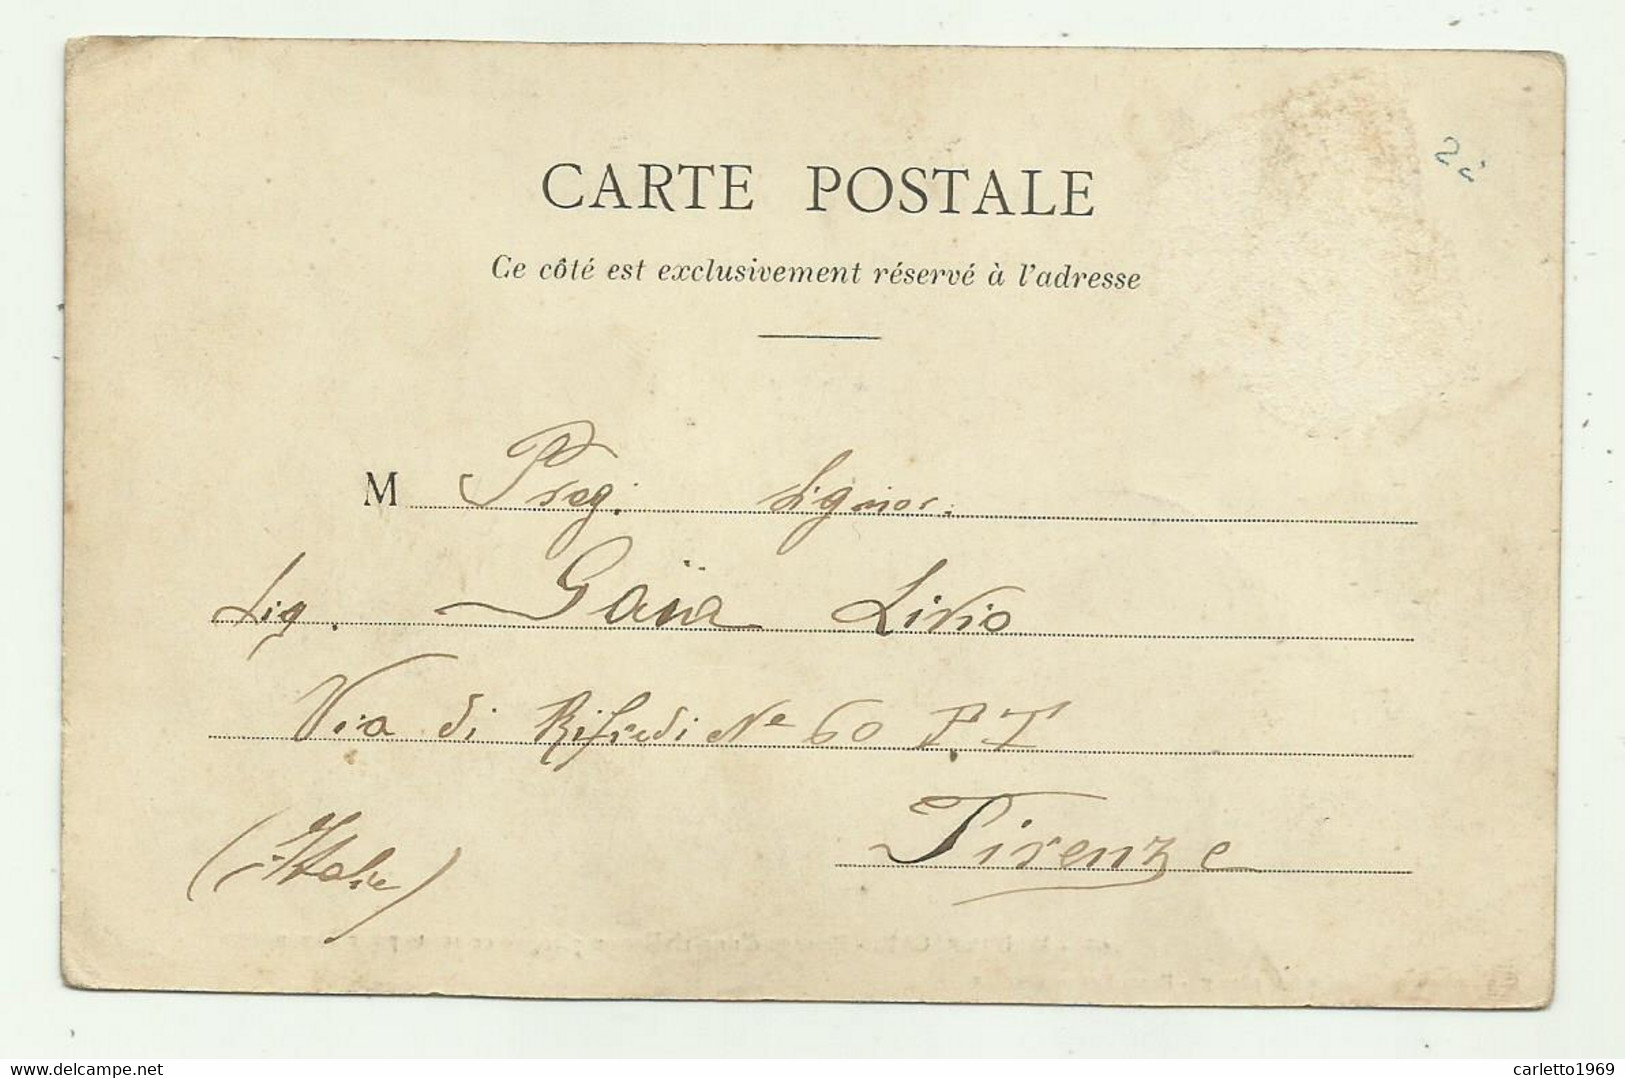 CARTE POSTALE
Ce côté est exclusivement réservé à l'adresse
M Preg. Signor.
Sig. Gaïa Livio
Via di Rifredi Nº 60 P. T
Firenze
(Italie)
delcampe.net
carletto1969